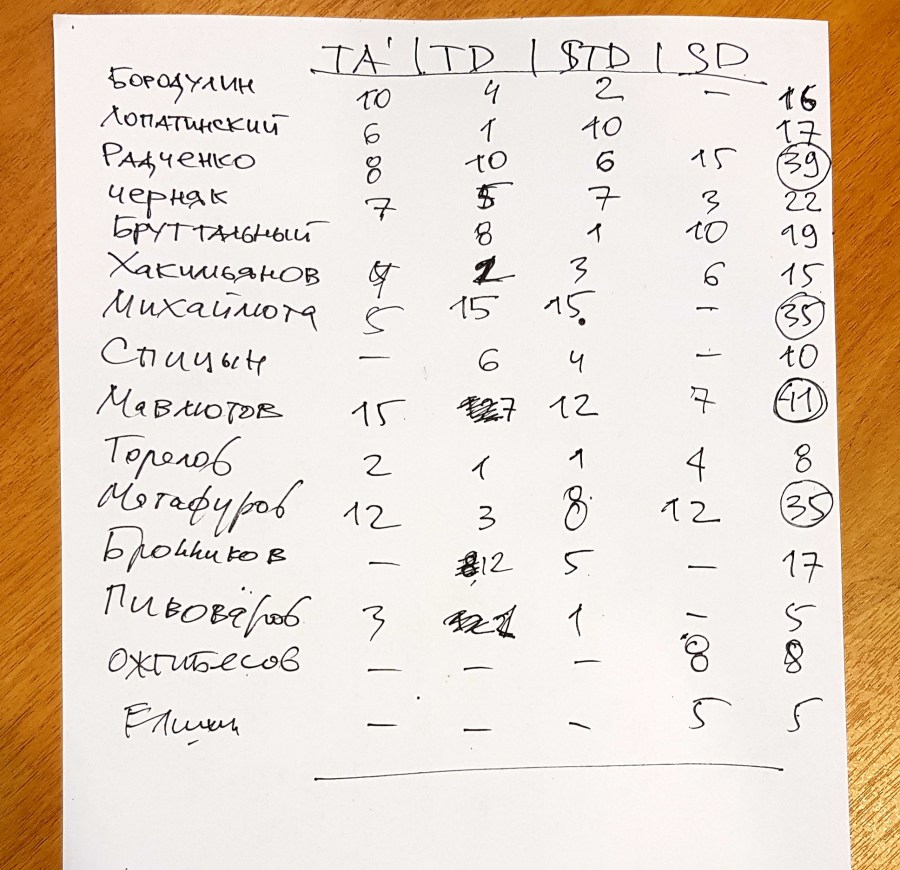 TA' | TD | STD | SD
Бородулин 10 4 2 – 16
Лопатинский 6 1 10 17
Радченко 8 10 6 15 39
Черняк 7 5 7 3 22
Бруттальный 8 1 10 19
Хакимьянов 4 2 3 6 15
Михаймота 5 15 15. – 35
Спицын – 6 4 – 10
Мавлютов 15 7 12 7 41
Горелов 2 1 1 4 8
Мегафуров 12 3 8 12 35
Бронников – 12 5 – 17
Пивоваров 3 1 1 – 5
Ожгибесов – – – 8 8
– – – 5 5